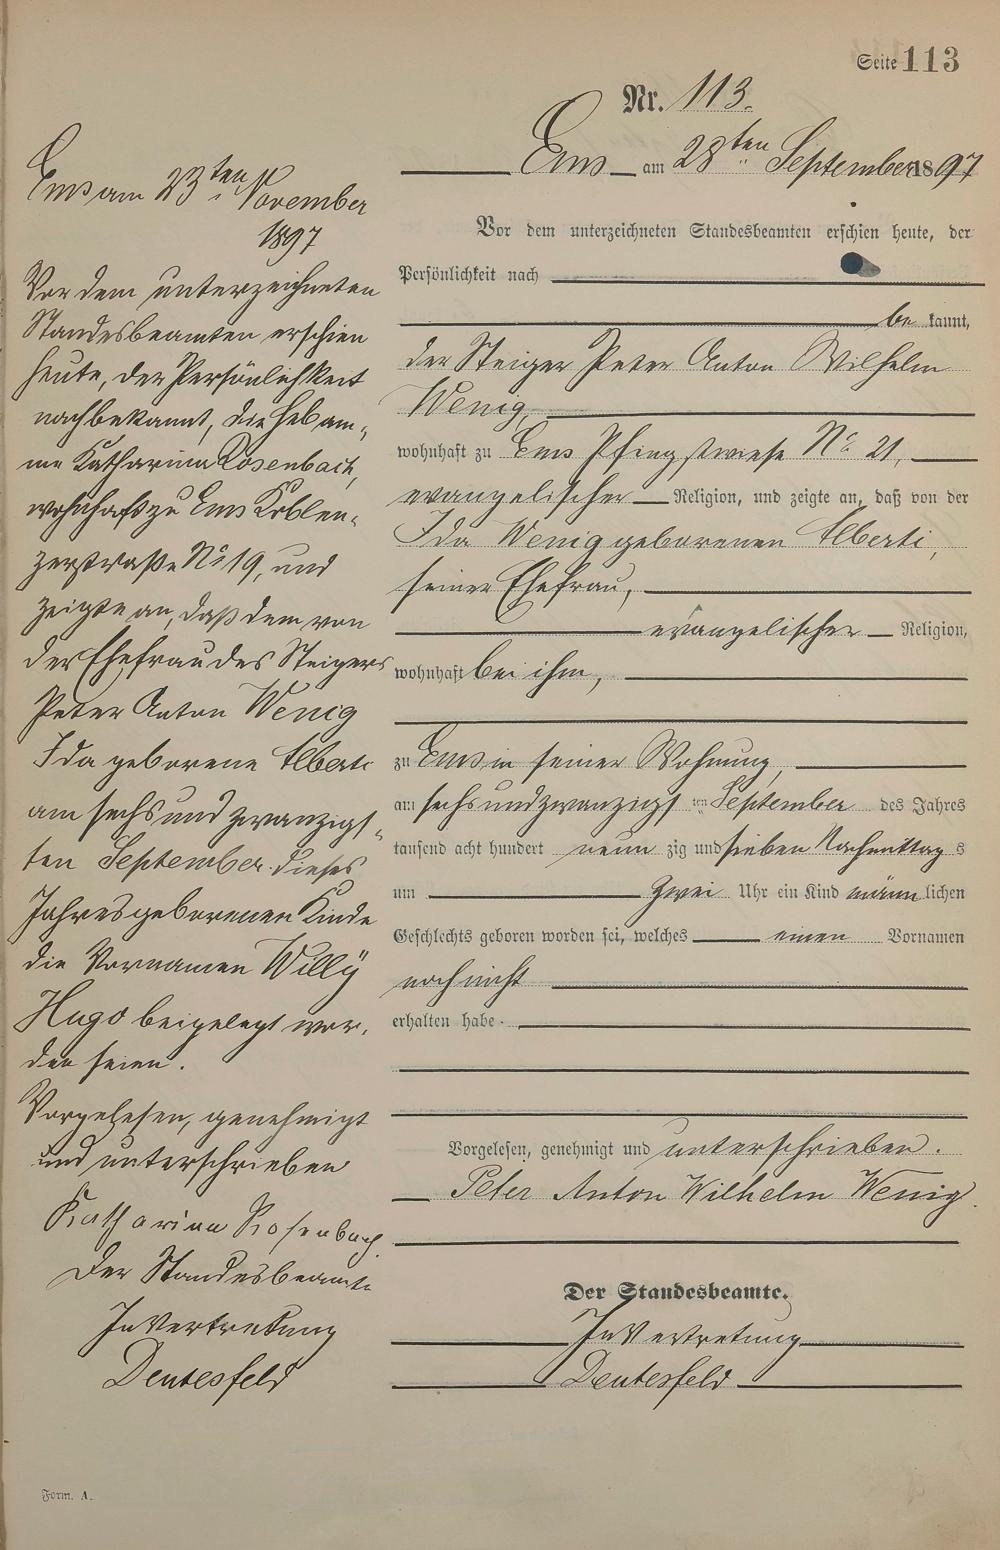 Seite 113
Nr. 113.
Ems am 28ten September 1897
Vor dem unterzeichneten Standesbeamten erschien heute, der
Persönlichkeit nach
be kannt,
der Steiger Peter Anton Wilhelm
Wenig,
wohnhaft zu Ems Pfingstwiese No 21,
evangelischer Religion, und zeigte an, daß von der
Ida Wenig geborenen Alberti,
seiner Ehefrau,
evangelischer Religion,
wohnhaft bei ihm,
zu Ems in seiner Wohnung,
am sechsundzwanzigs ten September des Jahres
tausend acht hundert neun zig und sieben Nachmittag s
um zwei Uhr ein Kind männ lichen
Geschlechts geboren worden sei, welches einen Vornamen
noch nicht
erhalten habe.
Vorgelesen, genehmigt und unterschrieben.
Peter Anton Wilhelm Wenig.
Der Standesbeamte.
In Vertretung
Deutesfeld
Ems am 23ten November
1897
Vor dem unterzeichneten
Standesbeamten erschien
heute, der Persönlichkeit
nach bekannt, die Hebam-
me Katharina Rosenbach,
wohnhaft zu Ems Koblen-
zerstraße No 19, und
zeigte an, daß dem von
der Ehefrau des Steigers
Peter Anton Wenig
Ida geborene Alberti
am sechs und zwanzigs-
ten September dieses
Jahres geborenen Kinde
die Vornamen Willÿ
Hugo beigelegt wor-
den seien.
Vorgelesen, genehmigt
und unterschrieben
Katharina Rosenbach
Der Standesbeamte
In Vertretung
Deutesfeld
Form. A.